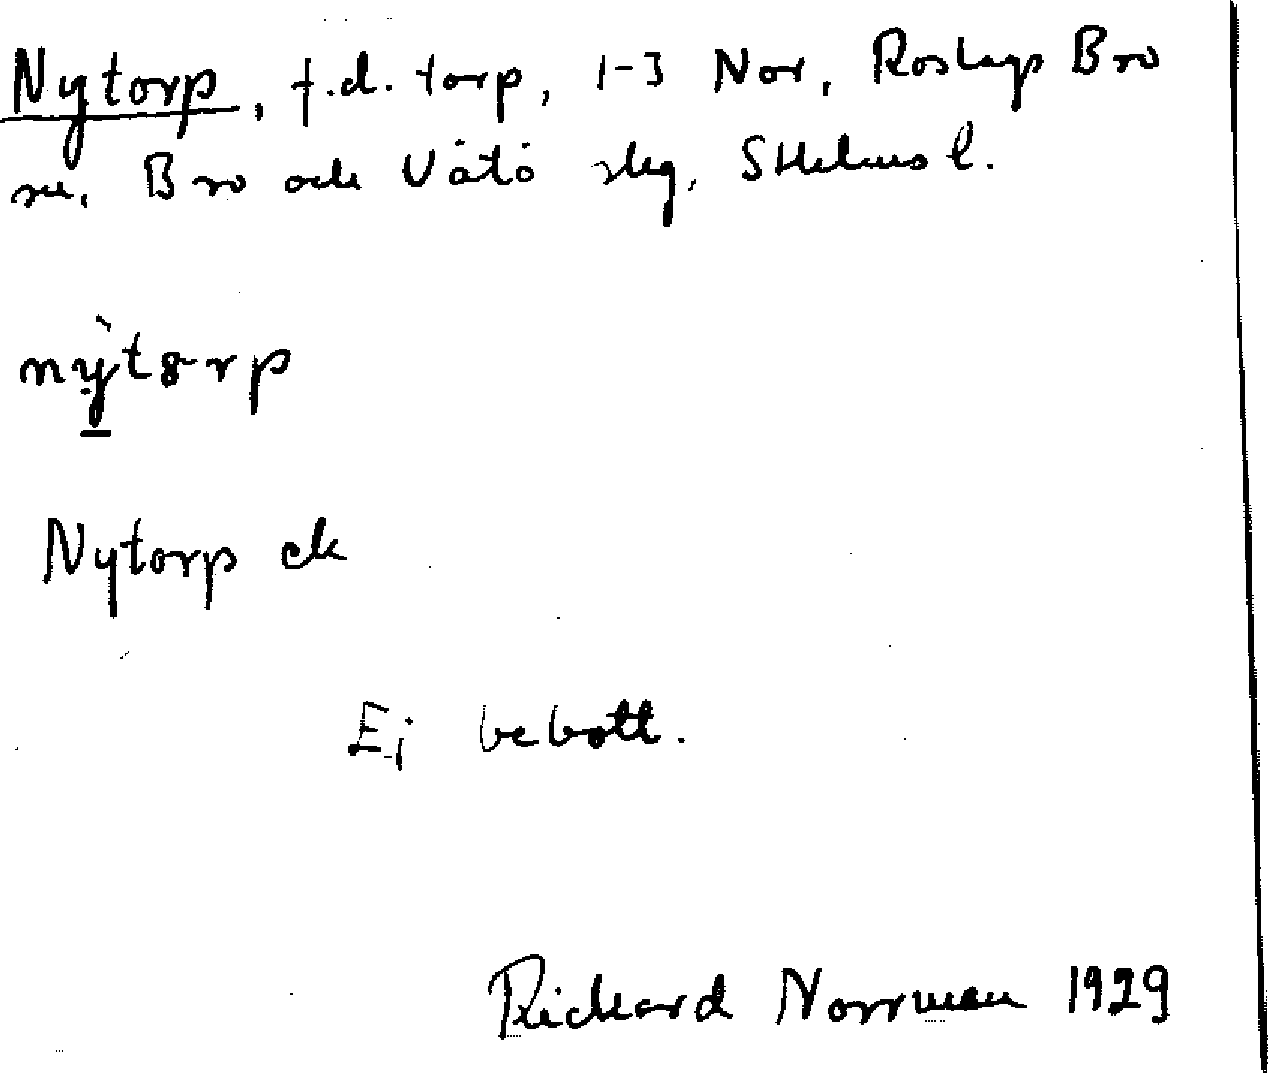 Nytorp, f.d. torp, 1-3 Nor, Roslags Bro
sn, Bro och Vätö slg, Sthlms l.
nỳtorp
Nytorp ek
Ej bebott.
Richard Norrman 1929